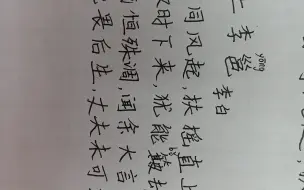 李邕 yōng 李白
同风起,扶摇直上
时下来,犹能簸 bǒ 去
恒殊调,闻余大言
畏后生,丈夫未可